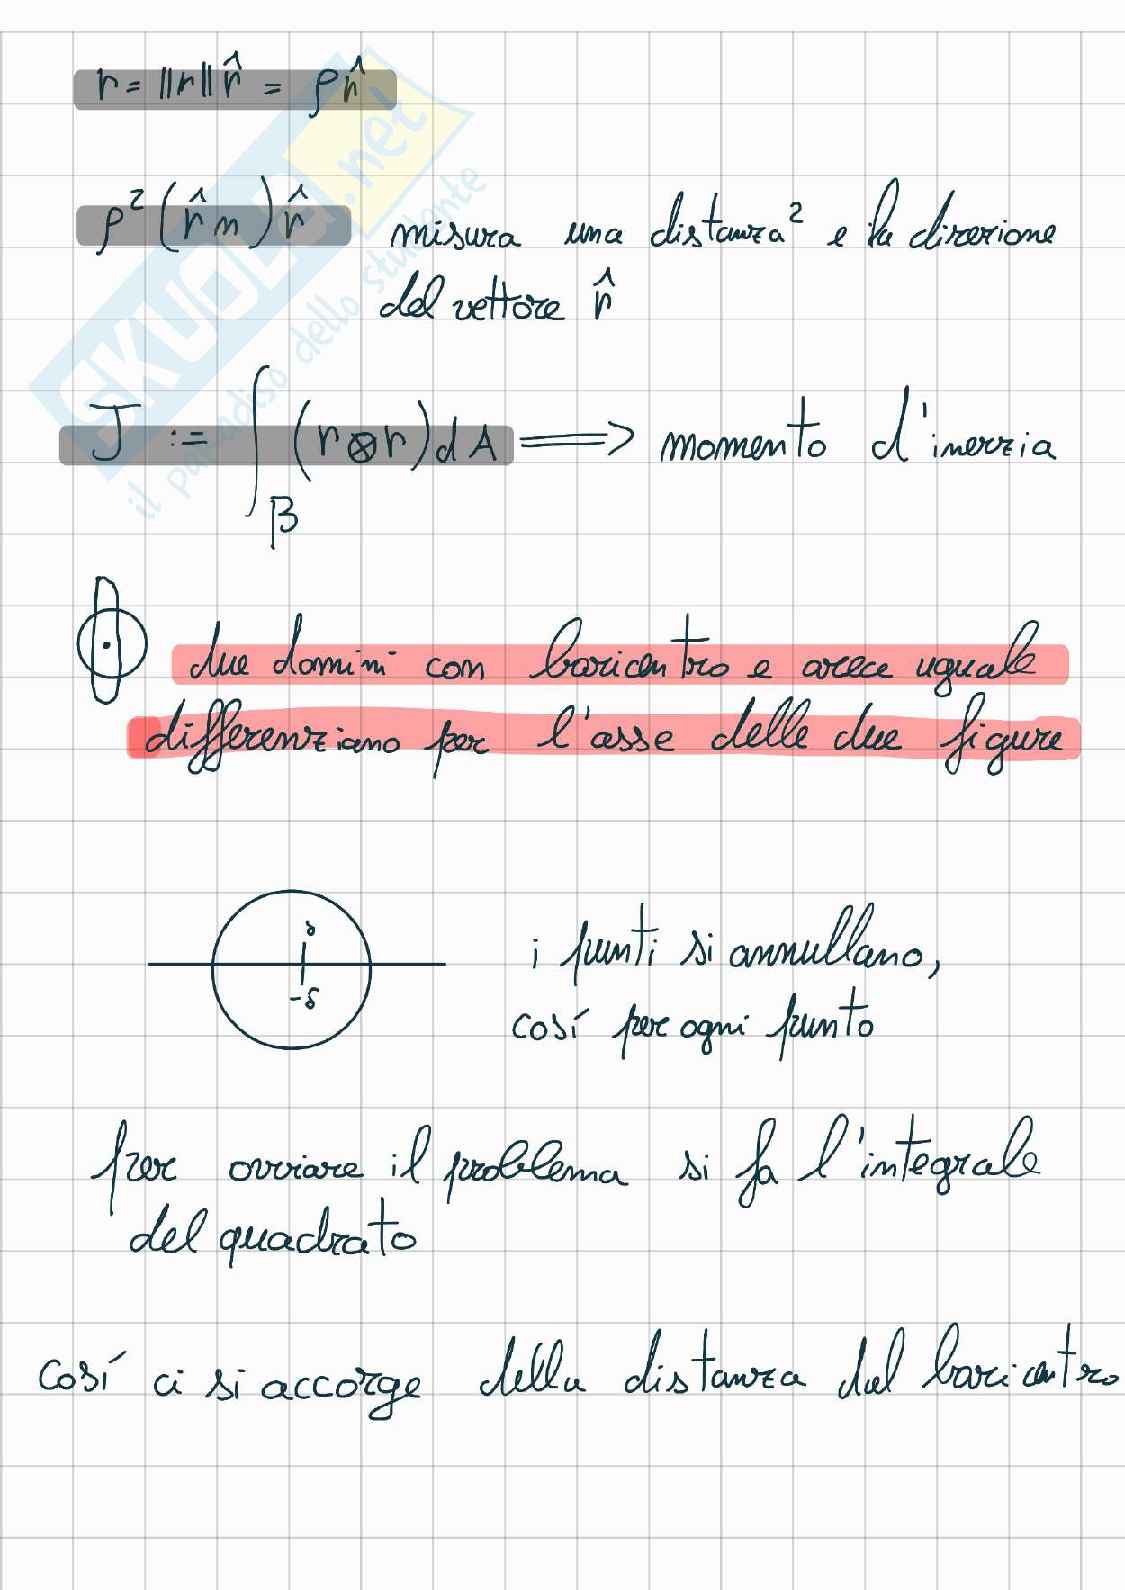 r = ‖r‖ r̂ = ρ r̂
ρ² (r̂ n) r̂ misura una distanza² e la direzione
del vettore r̂
J := ∫_B (r ⊗ r) dA ⟹ momento d'inerzia
due domini con baricentro e area uguale
differenziano per l'asse delle due figure
δ
-δ
i punti si annullano,
cosí per ogni punto
per ovviare il problema si fa l'integrale
del quadrato
cosí ci si accorge della distanza dal baricentro
SKUOLA.net
il paradiso dello studente